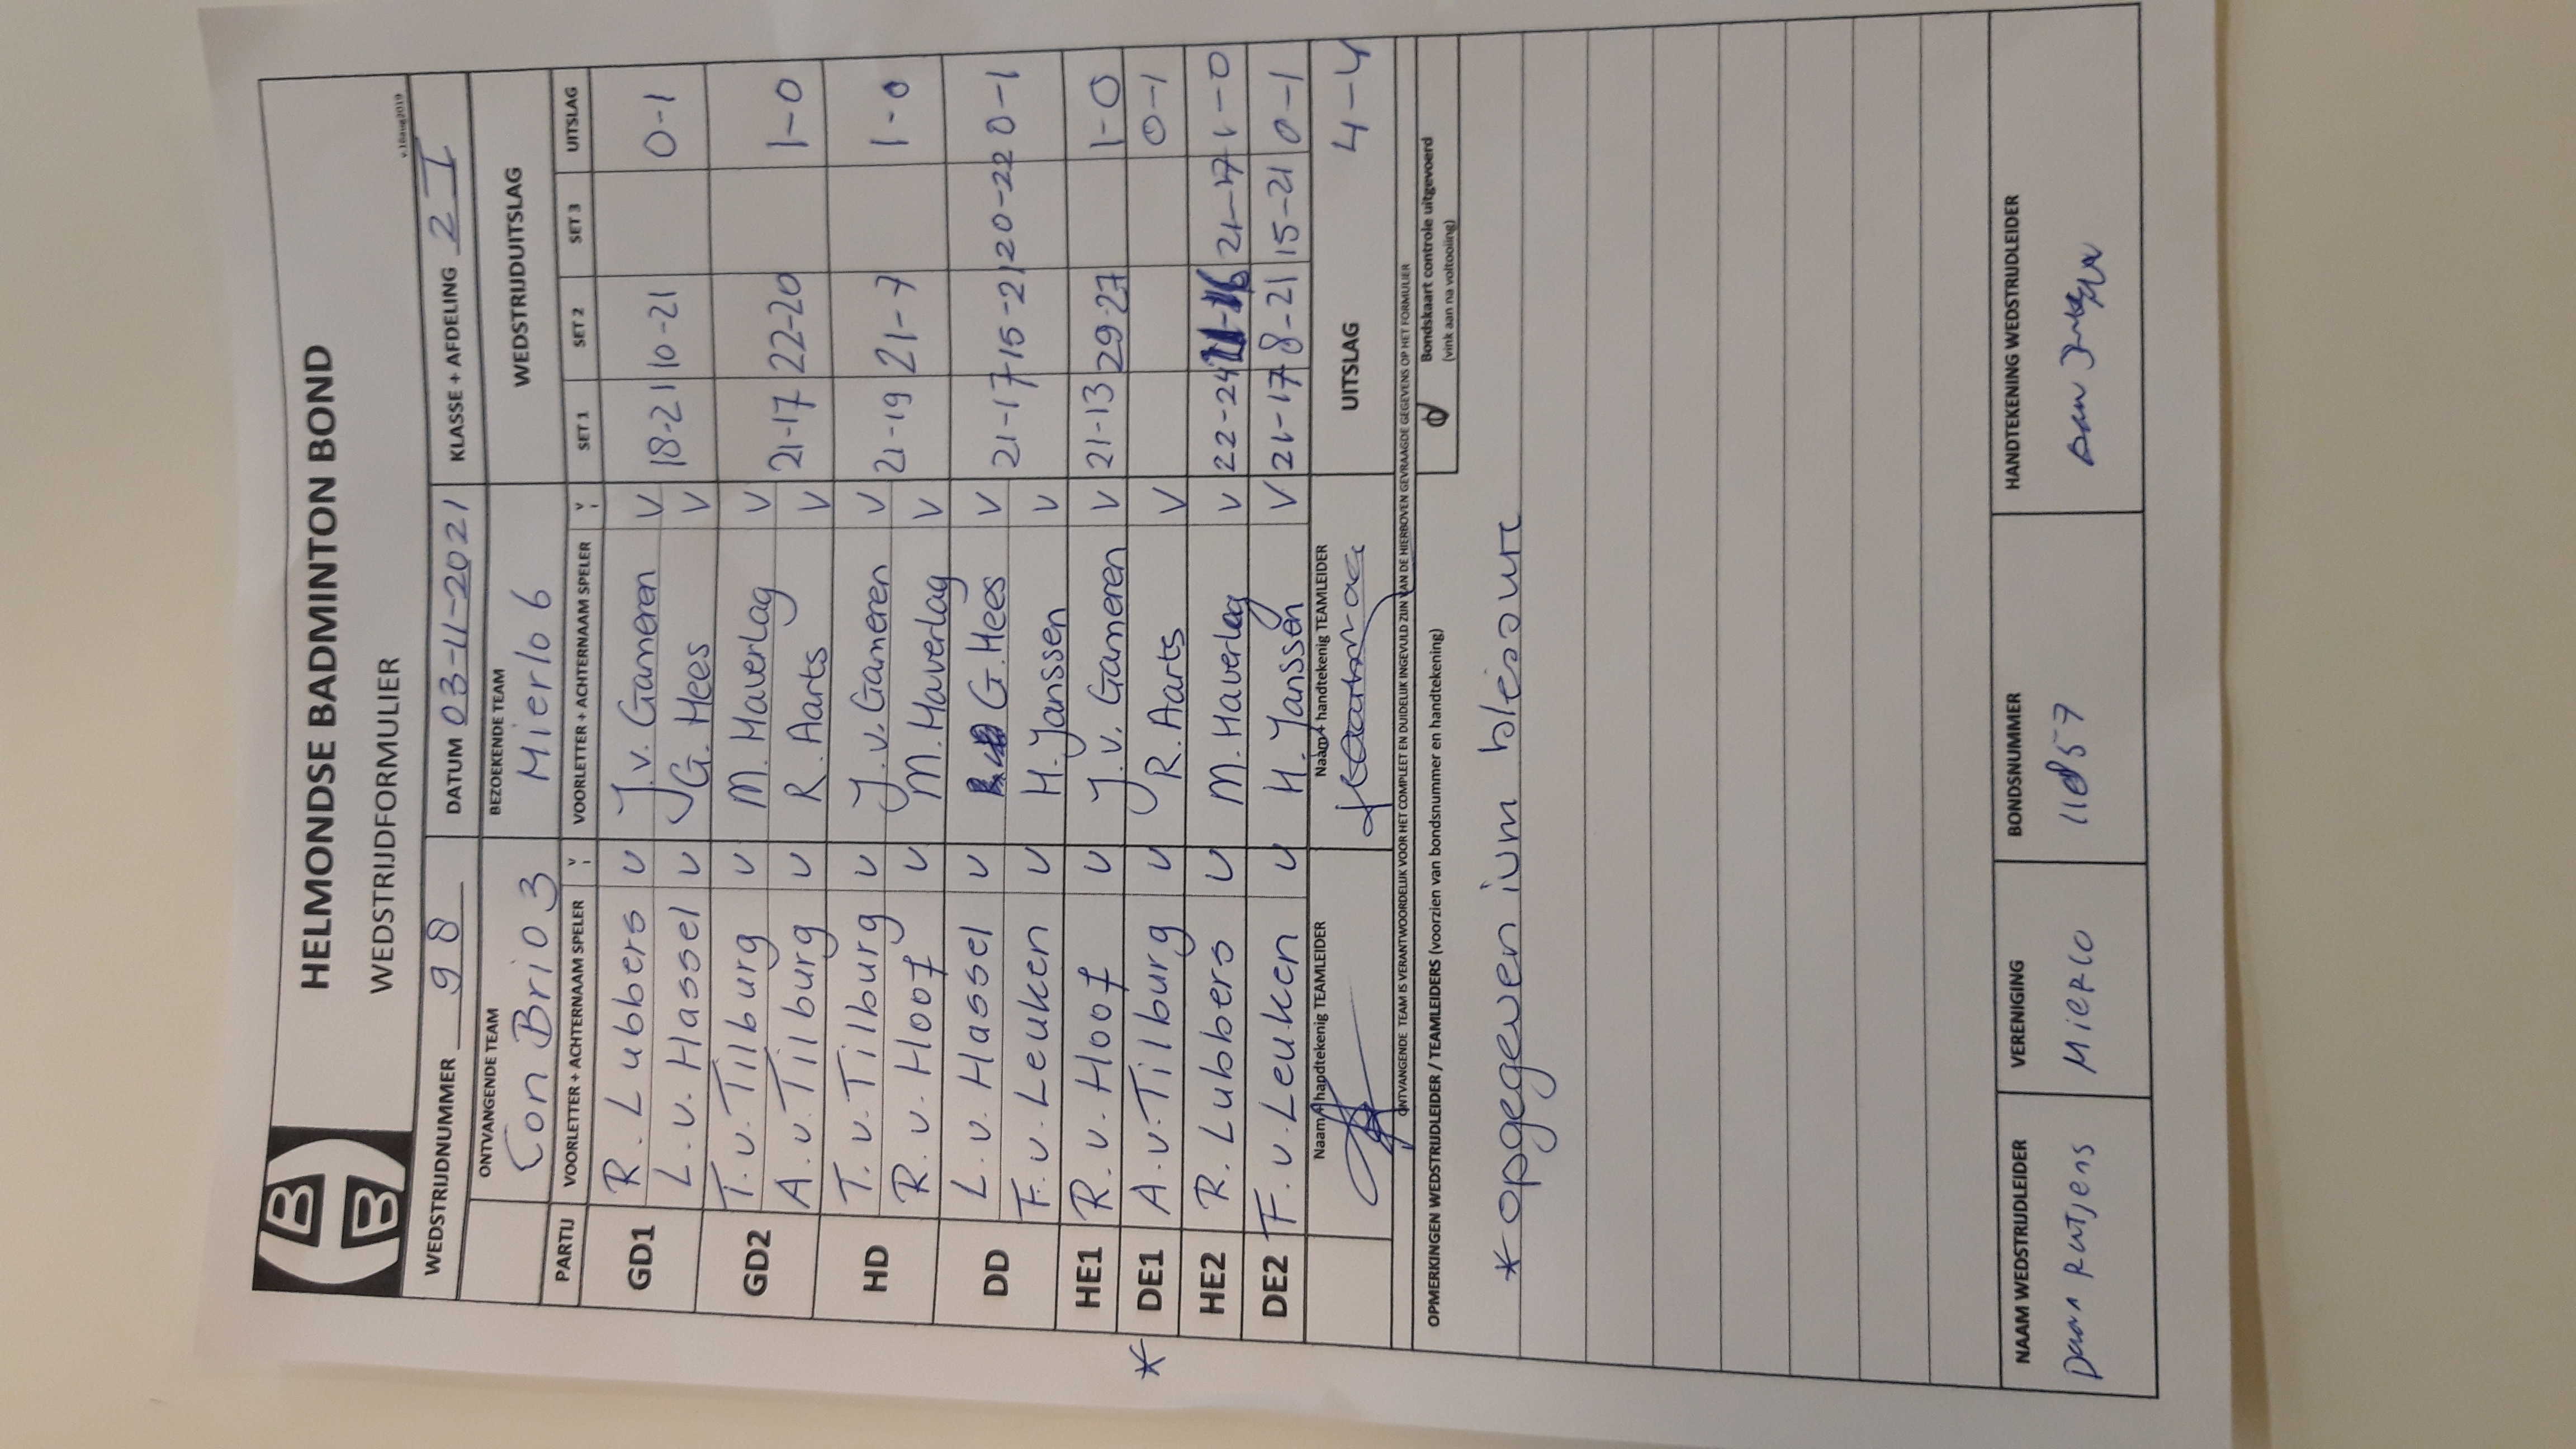 HELMONDSE BADMINTON BOND
WEDSTRIJDFORMULIER
v.10aug2019
WEDSTRIJDNUMMER 98 DATUM 03-11-2021 KLASSE + AFDELING 2 I
ONTVANGENDE TEAM BEZOEKENDE TEAM WEDSTRIJDUITSLAG
Con Brio 3 Mierlo 6
PARTIJ VOORLETTER + ACHTERNAAM SPELER V VOORLETTER + ACHTERNAAM SPELER V SET 1 SET 2 SET 3 UITSLAG
GD1 R. Lubbers v J.v. Gameren V 18-21 10-21 0-1
L. v. Hassel v G. Hees V
GD2 T. v. Tilburg v M. Haverlag V 21-17 22-20 1-0
A. v. Tilburg v R. Aarts V
HD T. v. Tilburg v J.v. Gameren V 21-19 21-7 1-0
R. v. Hoof v M. Haverlag V
DD L. v. Hassel v G. Hees V 21-17 15-21 20-22 0-1
F. v. Leuken v H. Janssen V
HE1 R. v. Hoof v J. v. Gameren V 21-13 29-27 1-0
* DE1 A. v. Tilburg v R. Aarts V 0-1
HE2 R. Lubbers v M. Haverlag V 22-24 21-17 1-0
DE2 F. v. Leuken v H. Janssen V 21-17 8-21 15-21 0-1
Naam + handtekenig TEAMLEIDER Naam + handtekenig TEAMLEIDER UITSLAG 4-4
ONTVANGENDE TEAM IS VERANTWOORDELIJK VOOR HET COMPLEET EN DUIDELIJK INGEVULD ZIJN VAN DE HIERBOVEN GEVRAAGDE GEGEVENS OP HET FORMULIER
OPMERKINGEN WEDSTRIJDLEIDER / TEAMLEIDERS (voorzien van bondsnummer en handtekening) Bondskaart controle uitgevoerd
(vink aan na voltooiing)
* opgegeven ivm blessure
NAAM WEDSTRIJDLEIDER VERENIGING BONDSNUMMER HANDTEKENING WEDSTRIJDLEIDER
Daan Rutjens Mierlo